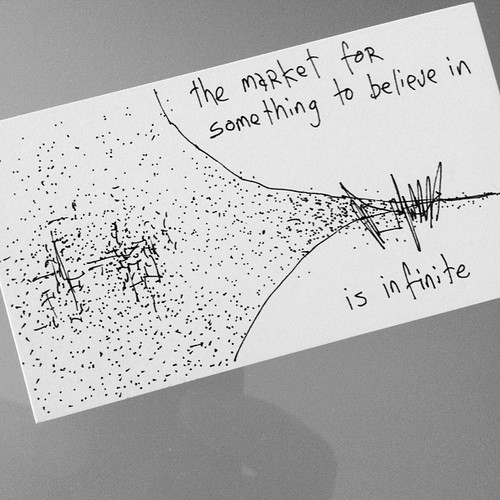 the market for
something to believe in
is infinite